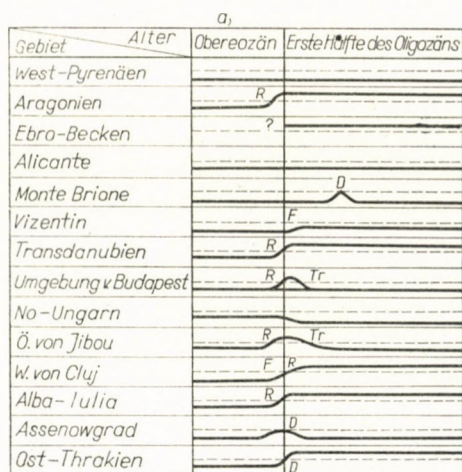 a,
Gebiet Alter Obereozän Erste Hälfte des Oligozäns
West-Pyrenäen
Aragonien R
Ebro-Becken ?
Alicante
Monte Brione D
Vizentin F
Transdanubien R
Umgebung v. Budapest R Tr
No-Ungarn
Ö. von Jibou R Tr
W. von Cluj F R
Alba-Iulia R
Assenowgrad D
Ost-Thrakien D